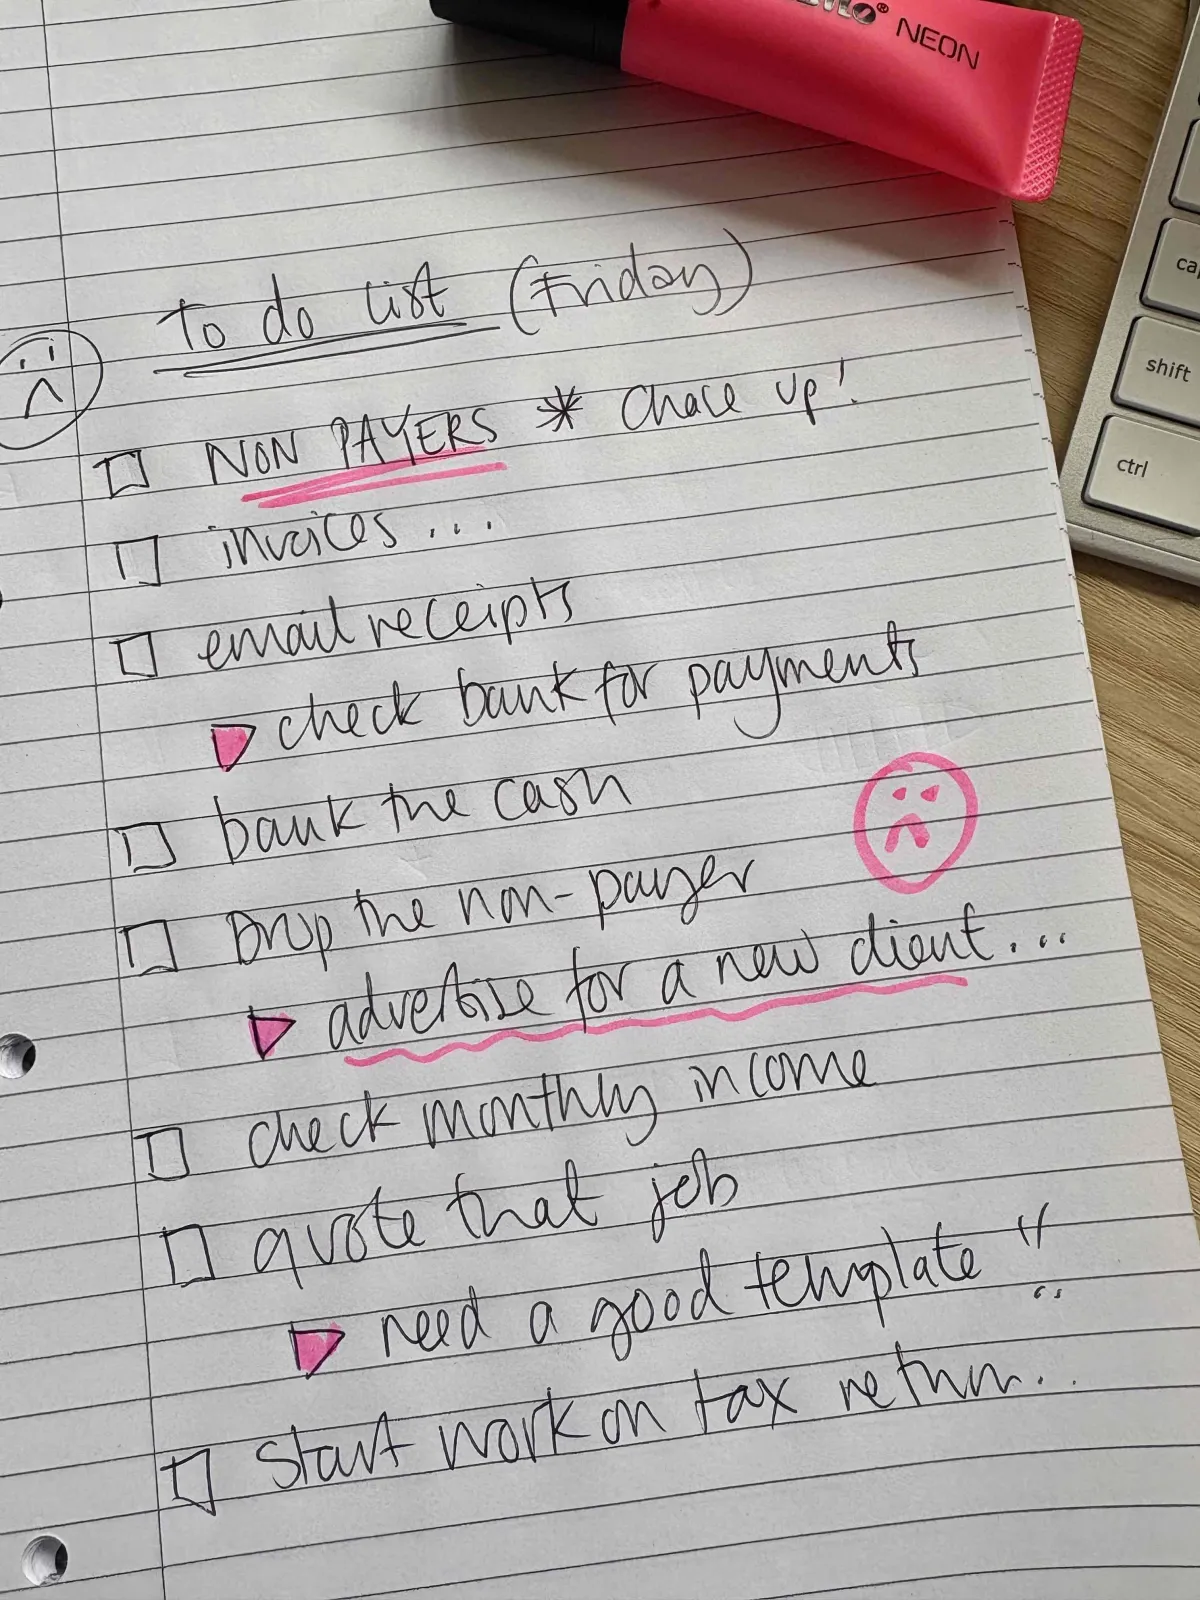 NEON
cap
shift
ctrl
To do list (Friday)
NON PAYERS * Chase up!
invoices...
email receipts
check bank for payments
bank the cash
Drop the non-payer
advertise for a new client...
check monthly income
quote that job
need a good template !!
Start work on tax return...